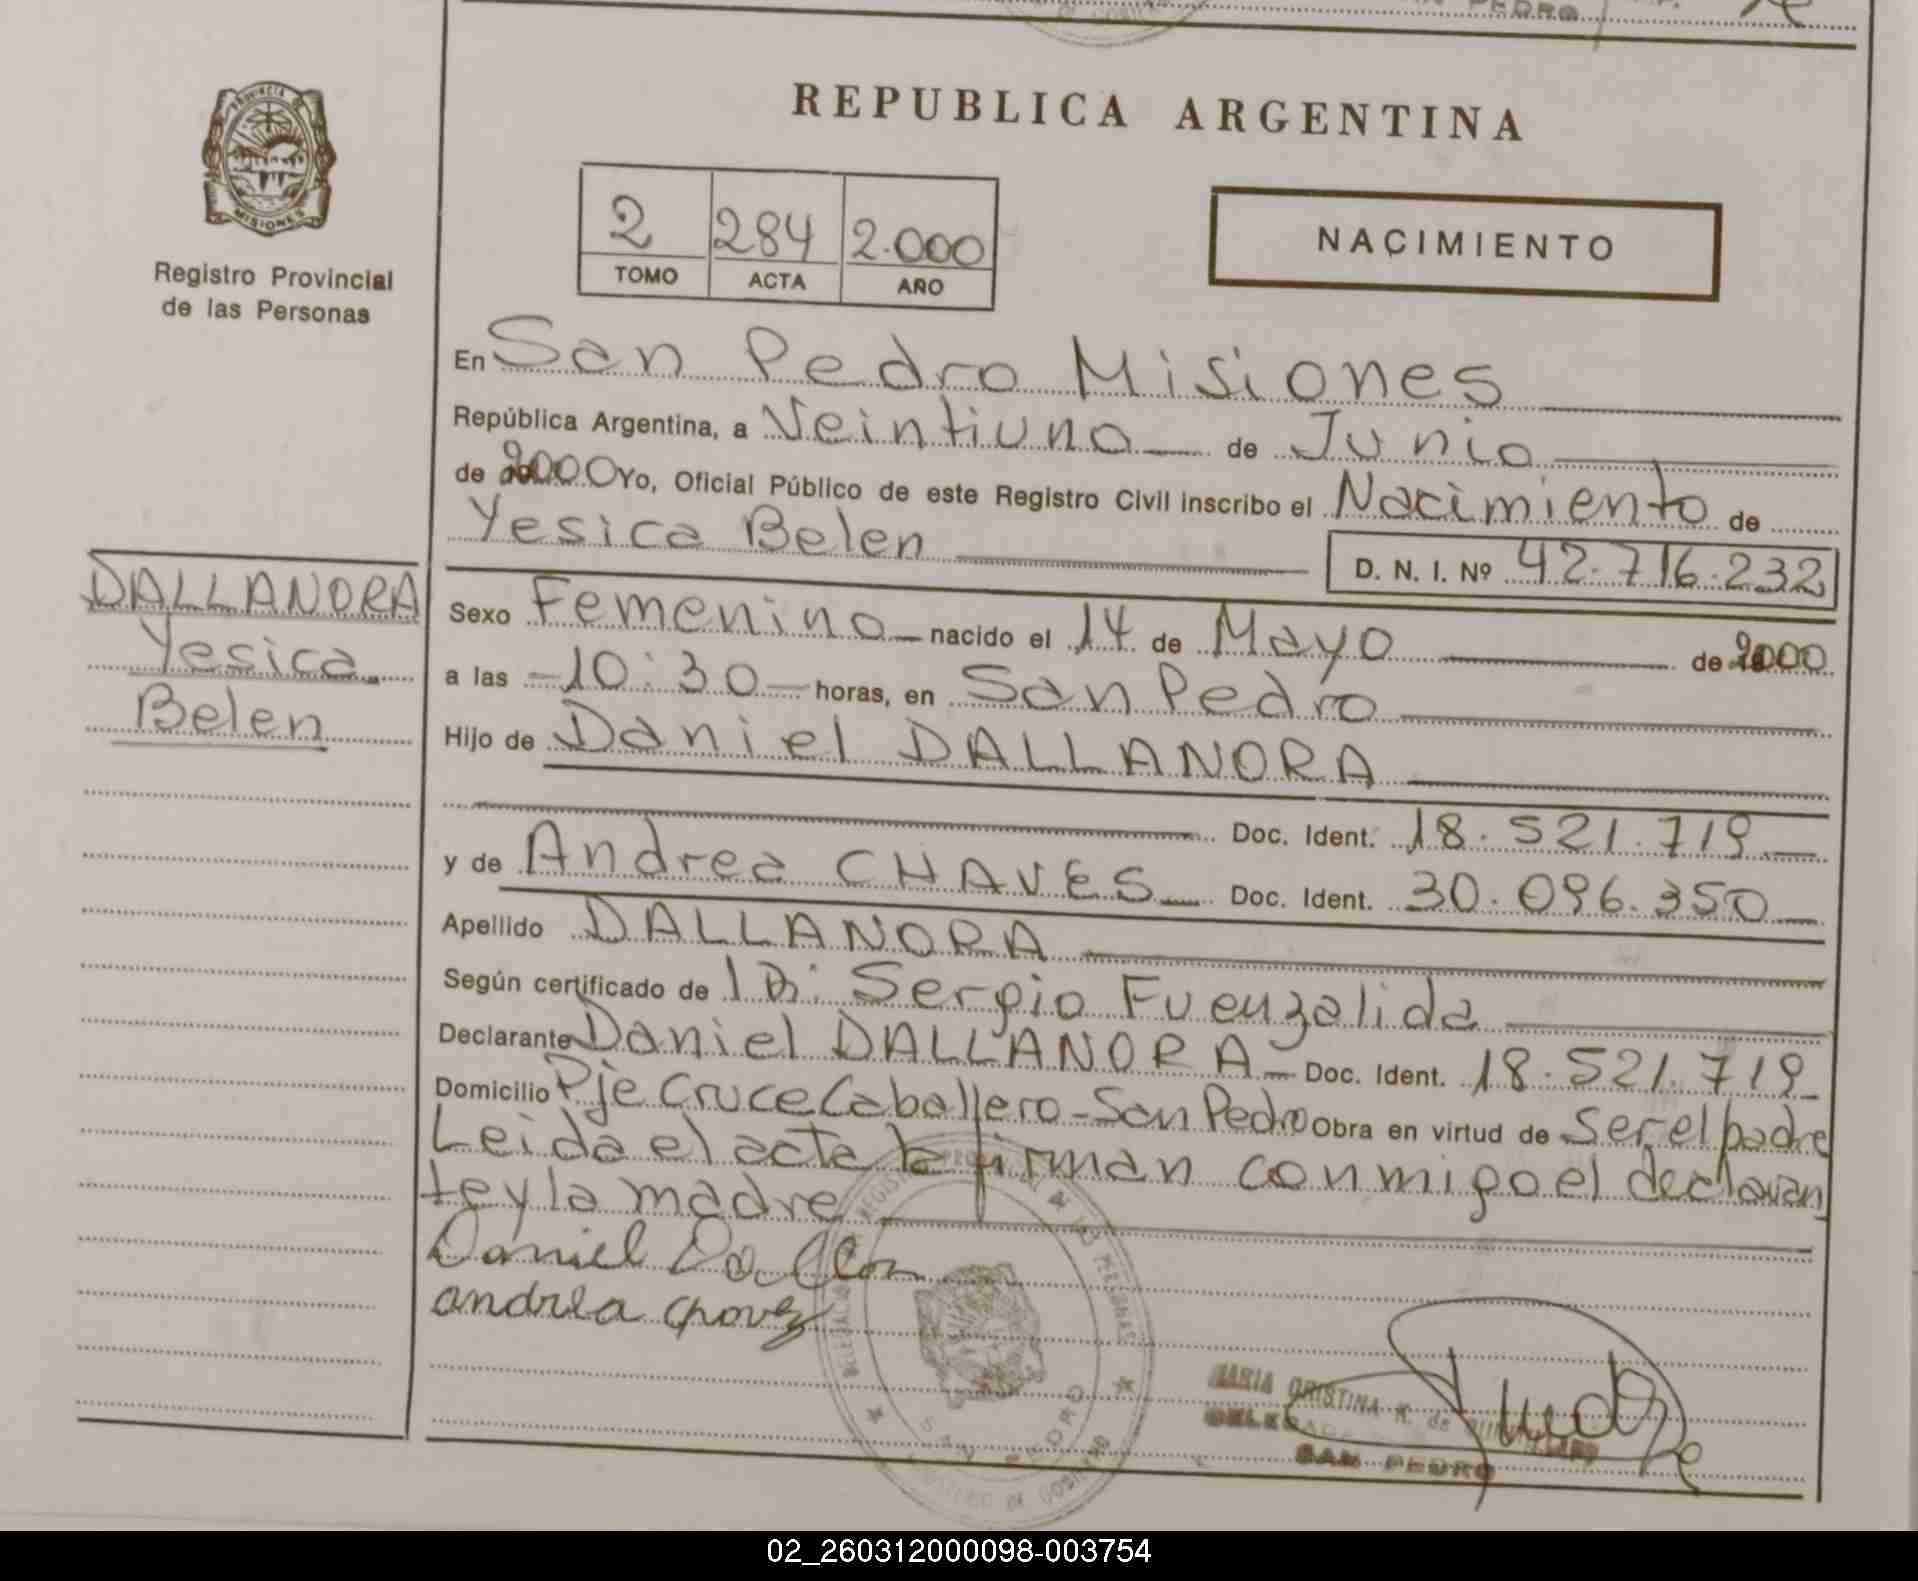 PEDRO
PROVINCIA DE
MISIONES
Registro Provincial
de las Personas
REPUBLICA ARGENTINA
2 284 2.000
TOMO ACTA AÑO
NACIMIENTO
En San Pedro Misiones
República Argentina, a Veintiuno de Junio
de 2000 Yo, Oficial Público de este Registro Civil inscribo el Nacimiento de
Yesica Belen
D. N. I. Nº 42.716.232
DALLANORA
Yesica
Belen
Sexo Femenino nacido el 14 de Mayo de 2000
a las 10:30 horas, en San Pedro
Hijo de Daniel DALLANORA
Doc. Ident. 18.521.719
y de Andrea CHAVES Doc. Ident. 30.096.350
Apellido DALLANORA
Según certificado de Sergio Fuenzalida
Declarante Daniel DALLANORA Doc. Ident. 18.521.719
Domicilio Pje Cruce Caballero - San Pedro Obra en virtud de Ser el padre
Leida el acta la firman conmigo el declaran
te y la madre
Daniel
andrea chavez
LAS PERSONAS
SAN PEDRO
MARIA CRISTINA
SAN PEDRO
02_260312000098-003754